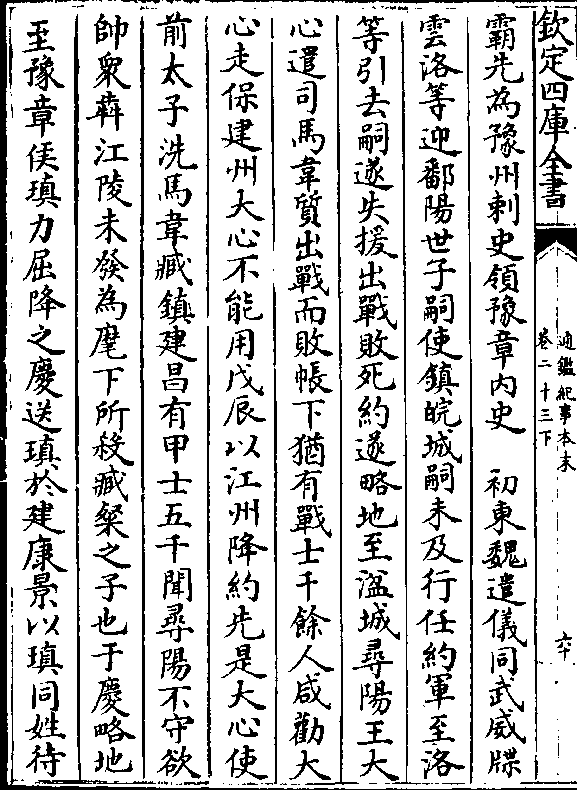 欽定四庫全書
通鑑紀事本末
卷二十三下
六十
霸先為豫州刺史領豫章内史　初東魏遣儀同武威牒
雲洛等迎鄱陽世子嗣使鎮皖城嗣未及行任約軍至洛
等引去嗣遂失援出戰敗死約遂略地至湓城尋陽王大
心遣司馬韋質出戰而敗帳下猶有戰士千餘人咸勸大
心走保建州大心不能用戊辰以江州降約先是大心使
前太子洗馬韋臧鎮建昌有甲士五千聞尋陽不守欲
帥衆奔江陵未發為麾下所殺臧粲之子也于慶略地
至豫章侯瑱力屈降之慶送瑱於建康景以瑱同姓待